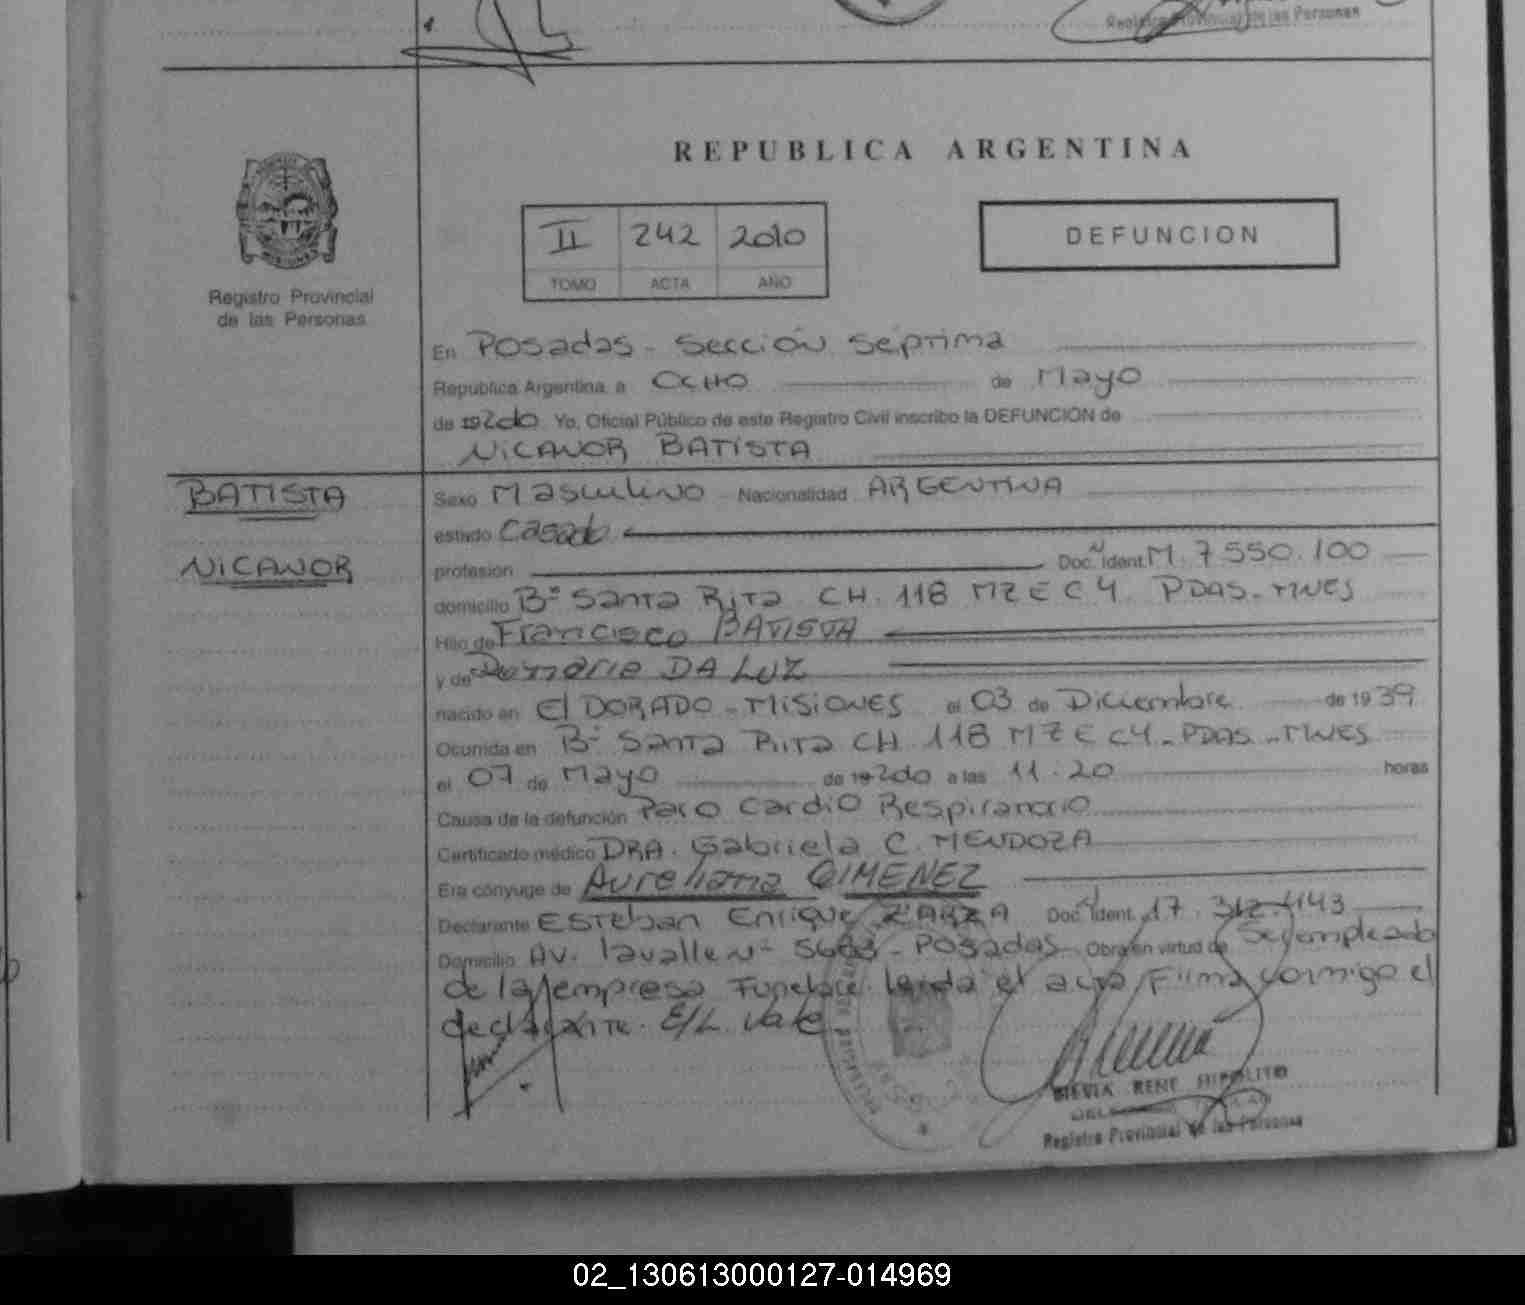 Registro Provincial de las Personas
REPUBLICA ARGENTINA
MISIONES
Registro Provincial
de las Personas
II 242 2010
TOMO ACTA AÑO
DEFUNCION
En Posadas - Sección Séptima
Republica Argentina a OCHO de Mayo
de Yo, Oficial Público de este Registro Civil inscribo la DEFUNCION de
NICANOR BATISTA
BATISTA
NICANOR
Sexo Masculino Nacionalidad ARGENTINA
estado Casado
profesion Doc. Ident. M. 7.550.100
domicilio Bº Santa Rita CH. 118 MZ E C 4 PDAS - MNES
Hijo de Francisco BATISTA
y de DA LUZ
nacido en El DORADO - MISIONES el 03 de Diciembre de 1939
Ocurrida en Bº Santa Rita CH 118 MZ E C4 - PDAS - MNES
el 07 de Mayo de a las 11.20 horas
Causa de la defunción Paro Cardio Respiratorio
Certificado médico DRA. Gabriela C. MENDOZA
Era cónyuge de Aureliana GIMENEZ
Declarante ESTEBAN Enrique ZARZA Doc. Ident. 17.312.443
Domicilio AV. Lavalle Nº 5683 - POSADAS Obra en virtud de Ser empleado
de la empresa Funebre. leída el acta Firma conmigo el
declarante. E/L Vale.
RENE HIPOLITO
Registro Provincial de las Personas
02_130613000127-014969